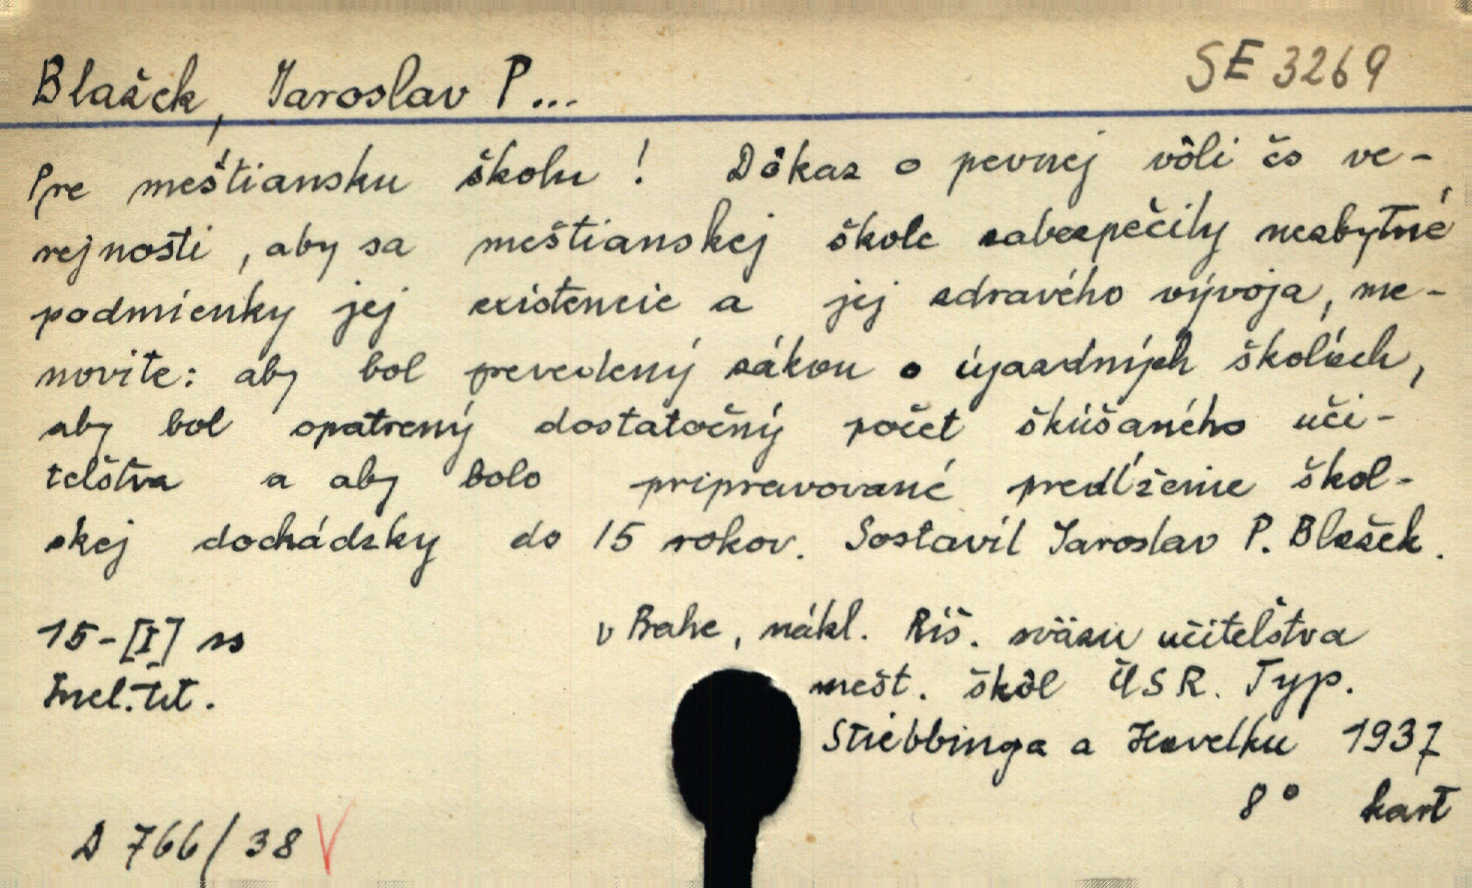 Blašek, Jaroslav P...
SE 3269
Pre meštiansku školu! Dôkaz o pevnej vôli čs ve-
rejnosti, aby sa meštianskej škole zabezpečily nezbytné
podmienky jej existencie a jej zdravého vývoja, me-
novite: aby bol prevedený zákon o újazdných školách,
aby bol opatrený dostatočný počet skúšaného uči-
telstva a aby bolo pripravované predĺženie škol-
skej dochádzky do 15 rokov. Sostavil Jaroslav P. Blašek.
15-[I] ss
v Prahe, nákl. Ríš. sväzu učitelstva
mešt. škôl ČSR. Typ.
Stiebbinga a Havelku 1937
8° kart
D 766/38 V